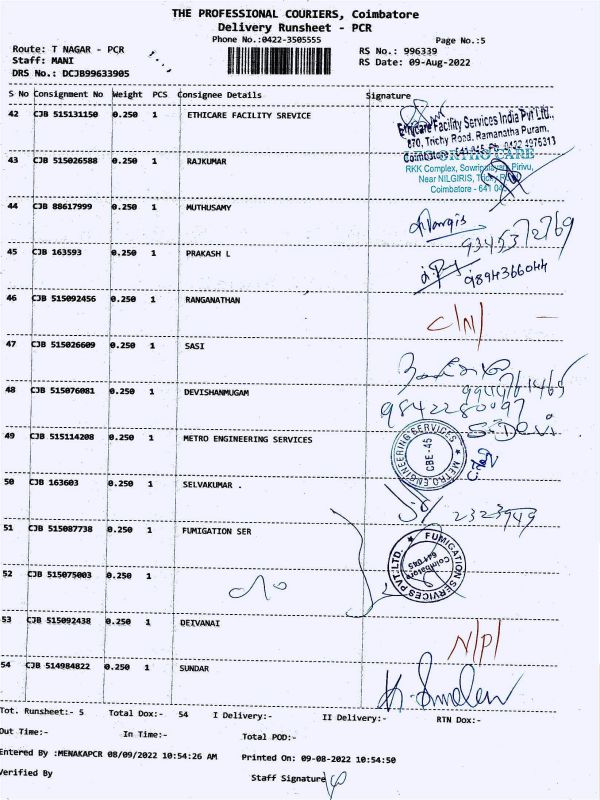 THE PROFESSIONAL COURIERS, Coimbatore
Delivery Runsheet - PCR
Phone No.:0422-3505555
Page No.:5
Route: T NAGAR - PCR
RS No.: 996339
Staff: MANI
RS Date: 09-Aug-2022
DRS No.: DCJB99633905
S No Consignment No Weight PCS Consignee Details Signature
42 CJB 515131150 0.250 1 ETHICARE FACILITY SREVICE
Ethicare Facility Services India Pvt Ltd.,
870, Trichy Road, Ramanatha Puram,
Coimbatore - 641 045 Ph: 0422 4976313
43 CJB 515026588 0.250 1 RAJKUMAR
ORTHO CARE
RKK Complex, Sowripalayam Pirivu,
Near NILGIRIS, Trichy
Coimbatore - 641 045
44 CJB 88617999 0.250 1 MUTHUSAMY
9345372769
45 CJB 163593 0.250 1 PRAKASH L
9894366044
46 CJB 515092456 0.250 1 RANGANATHAN
C/N/
47 CJB 515026609 0.250 1 SASI
9944761465
48 CJB 515076081 0.250 1 DEVISHANMUGAM
9842280097
S. Devi
49 CJB 515114208 0.250 1 METRO ENGINEERING SERVICES
METRO ENGINEERING SERVICES
CBE-45
50 CJB 163603 0.250 1 SELVAKUMAR .
2323949
51 CJB 515087738 0.250 1 FUMIGATION SER
FUMIGATION SERVICES PVT. LTD.
Coimbatore
641 045
52 CJB 515075003 0.250 1
53 CJB 515092438 0.250 1 DEIVANAI
N/P/
54 CJB 514984822 0.250 1 SUNDAR
Tot. Runsheet:- 5 Total Dox:- 54 I Delivery:- II Delivery:- RTN Dox:-
Out Time:- In Time:- Total POD:-
Entered By :MENAKAPCR 08/09/2022 10:54:26 AM Printed On: 09-08-2022 10:54:50
Verified By Staff Signature